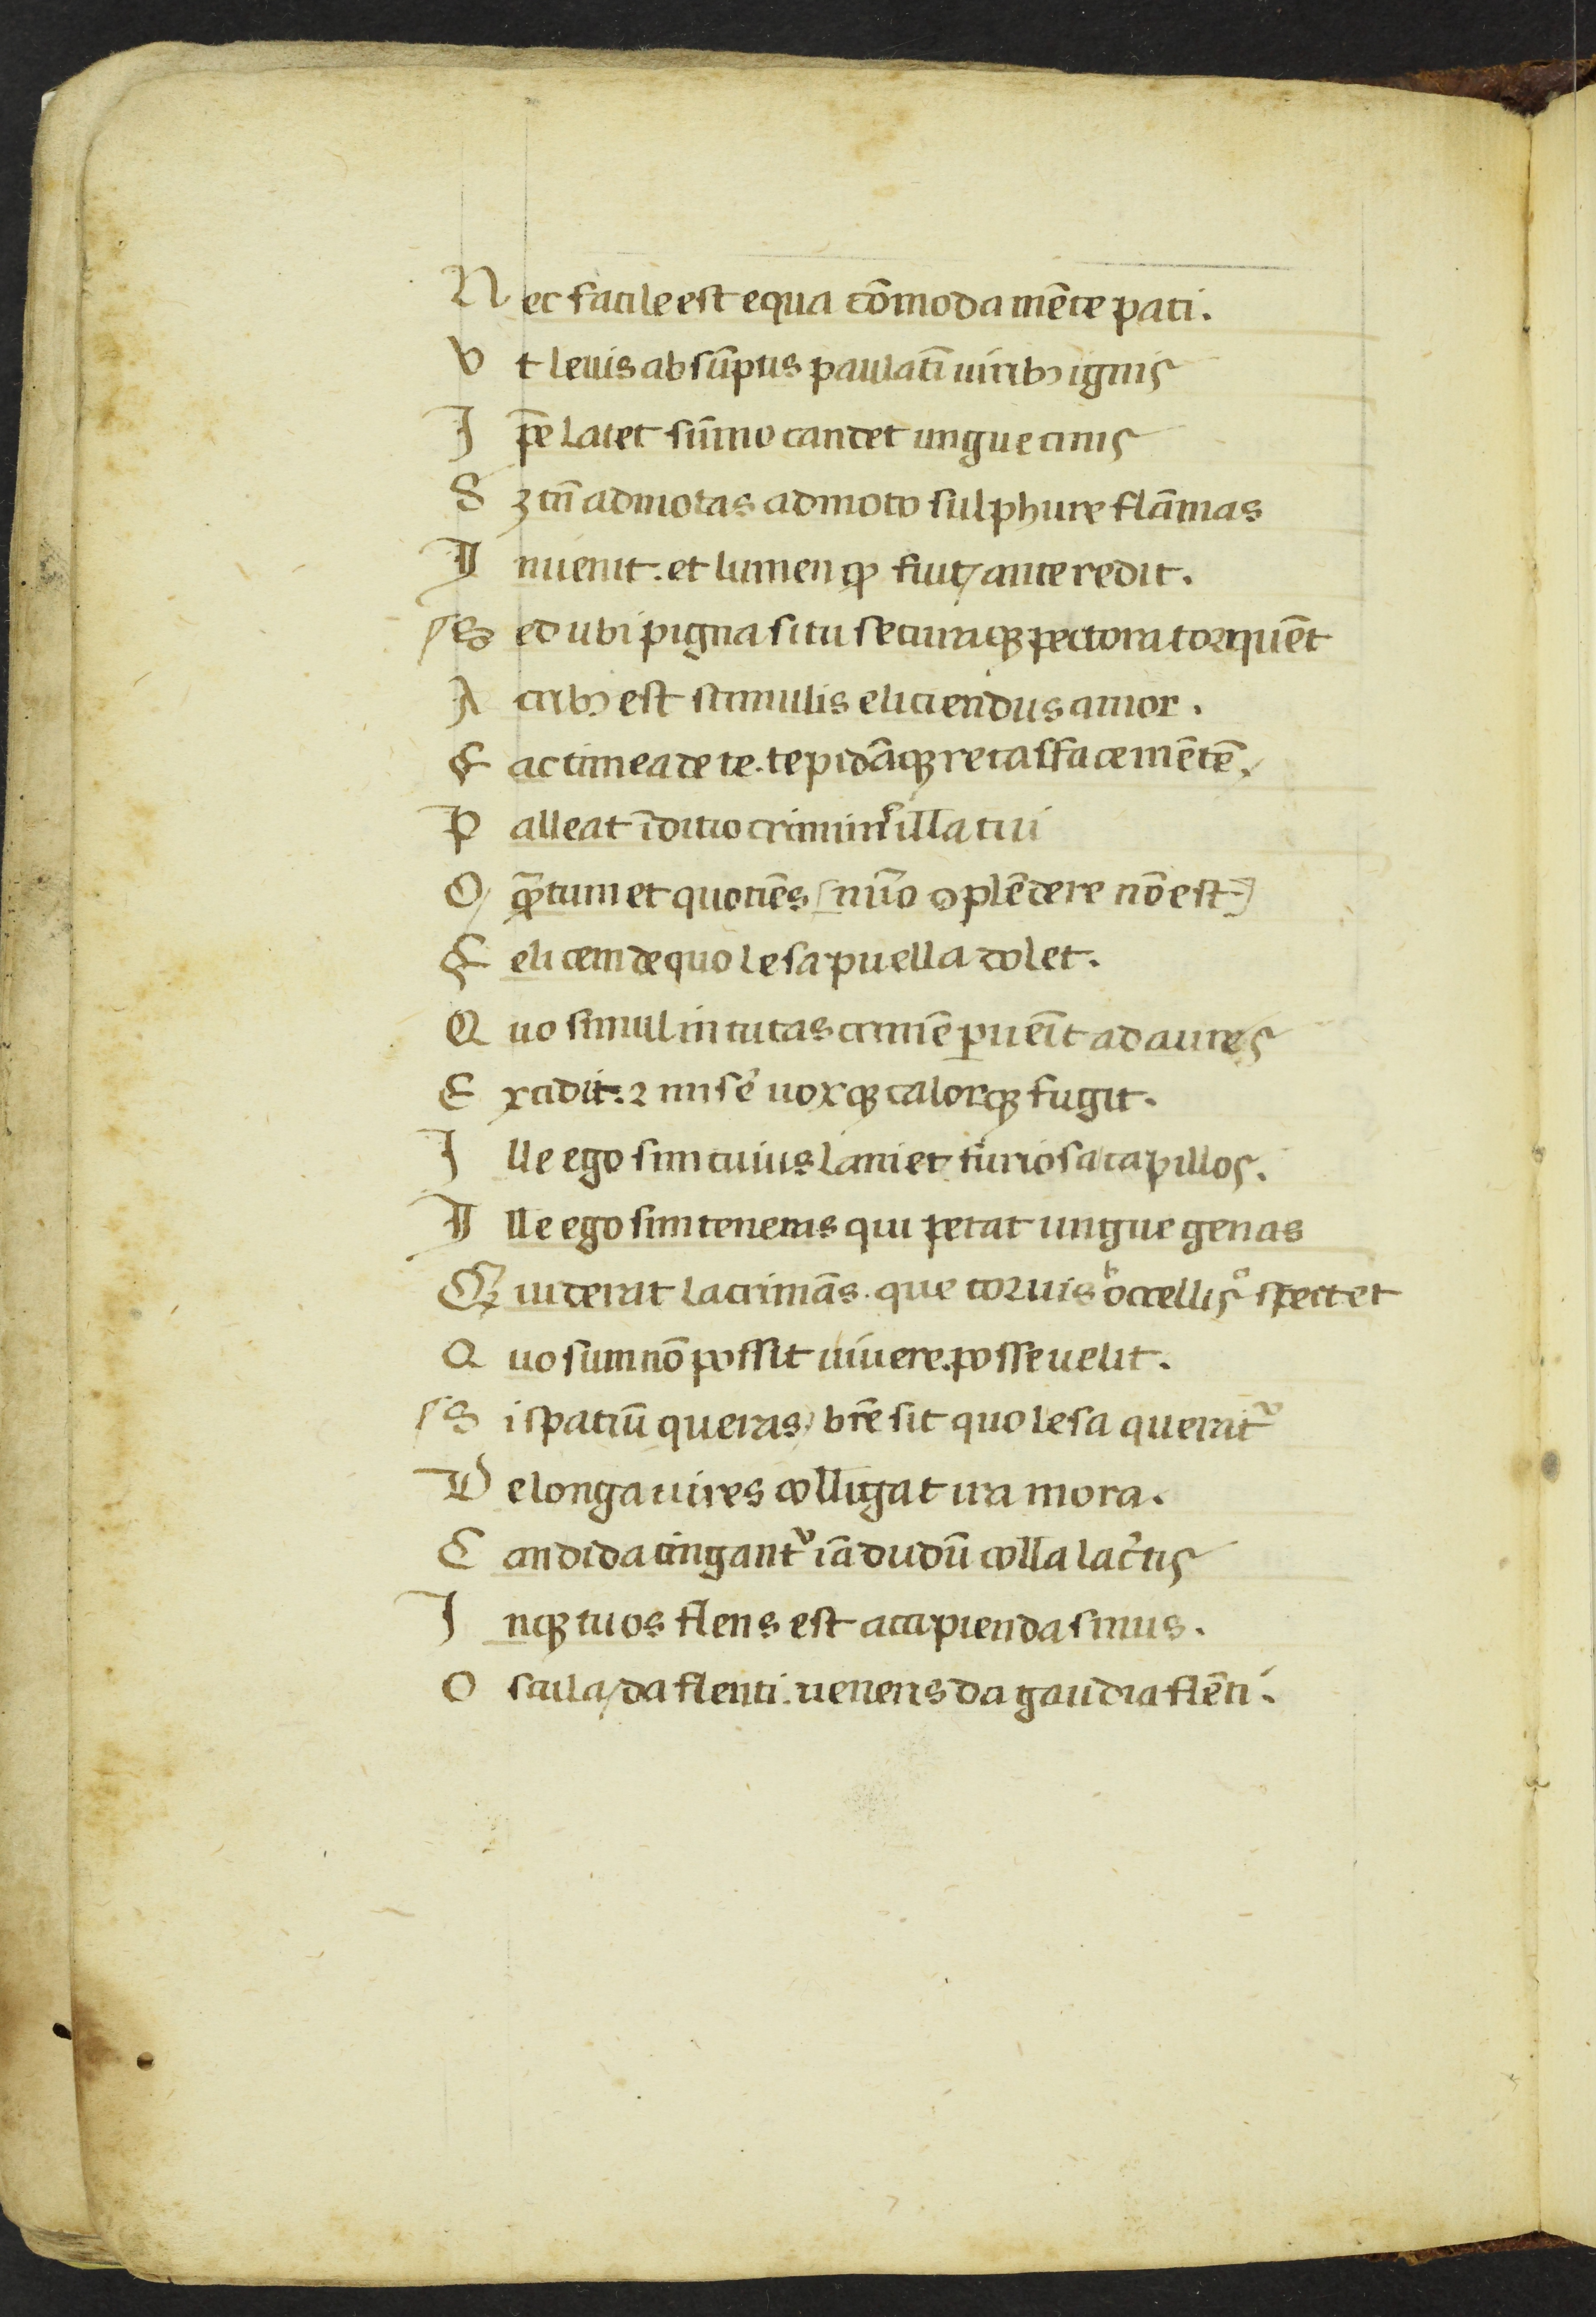 Nec facile est equa cōmoda mēte pati.
Vt leuis absūptus paulatī uiribꝫ ignis
Ipē latet sūmo candet ungue cinis
Sꝫ tn̄ admotas admoto sulphure flāmas
Inuenit. et lumen qꝫ fuit ante redit.
Sed ubi pigna situ securaqꝫ pectora torquēt
Acribꝫ est stimulis eliciendus amor.
Fac timea de te. tepidāqꝫ recalface mētē.
Palleat īditio criminis illa tui
O qᷓtum et quotiēs nūo ꝯplēdere nō est
Felicem de quo lesa puella dolet.
Quo simul inuitas crimē ꝑuēit ad aures
Excidit. ⁊ mise᷑ uoxqꝫ calorqꝫ fugit.
Ille ego sim cuius laniet furiosa capillos.
Ille ego sim teneras qui petat ungue genas
Quē uiderit lacrimās. que toruis ᵇocellis ᵃspectet
Quo sum nō possit uiuere. posse uelit.
Si spatiū queras, breē sit quo lesa querat᷑
Ne longa uires colligat ira mora.
Candida cingant᷑ iādudū colla lac᷑tis
Inqꝫ tuos flens est accipienda sinus.
Oscula da flenti. ueneris da gaudia flēti.